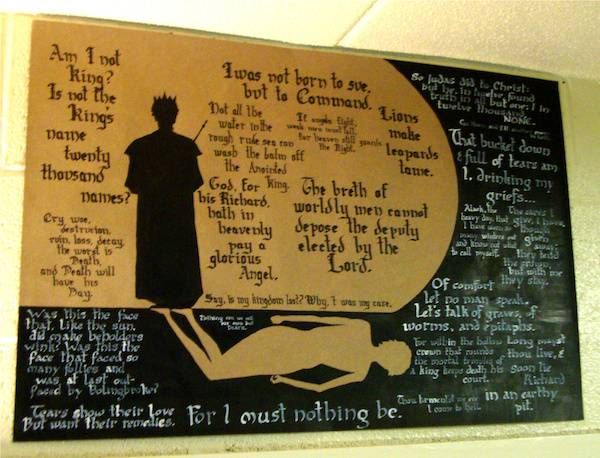 Am I not
King?
Is not the
Kings
name
twenty
thousand
names?
Cry woe,
destruction,
ruin, loss, decay,
the worst is
Death,
and Death will
have his
Day.
I was not born to sue,
but to Command.
Not all the
water in the
rough rude sea can
wash the balm off
the Anointed
King.
If angels fight,
weak men must fall,
for heaven still guards
the Right.
Lions
make
leopards
tame.
God, for
his Richard,
hath in
heavenly
pay a
glorious
Angel.
The breth of
worldly men cannot
depose the deputy
elected by the
Lord.
Say, is my kingdom lost? Why, t was my care.
So Judas did to Christ:
but he, in twelve, found
truth in all but one; I in
twelve thousand
NONE.
That bucket down
& full of tears am
I, drinking my
griefs...
The cares I
give, I have,
given
away;
They tend
the crown,
but with me
they stay.
Alack, the
heavy day, that
I have
many winters
and know not what
to call myself.
Of comfort
let no man speak.
Let's talk of graves, of
worms, and epitaphs.
For within the hollow
crown that rounds
the mortal temples of
a King keeps death his
court.
Long mayst
thou live, &
soon lie
Richard
in an earthy
pit.
Was this the face
that, like the sun,
did make beholders
wink? Was this the
face that faced so
many follies and
was at last out-
faced by Bolingbroke?
Tears show their love
But want their remedies.
For I must nothing be.